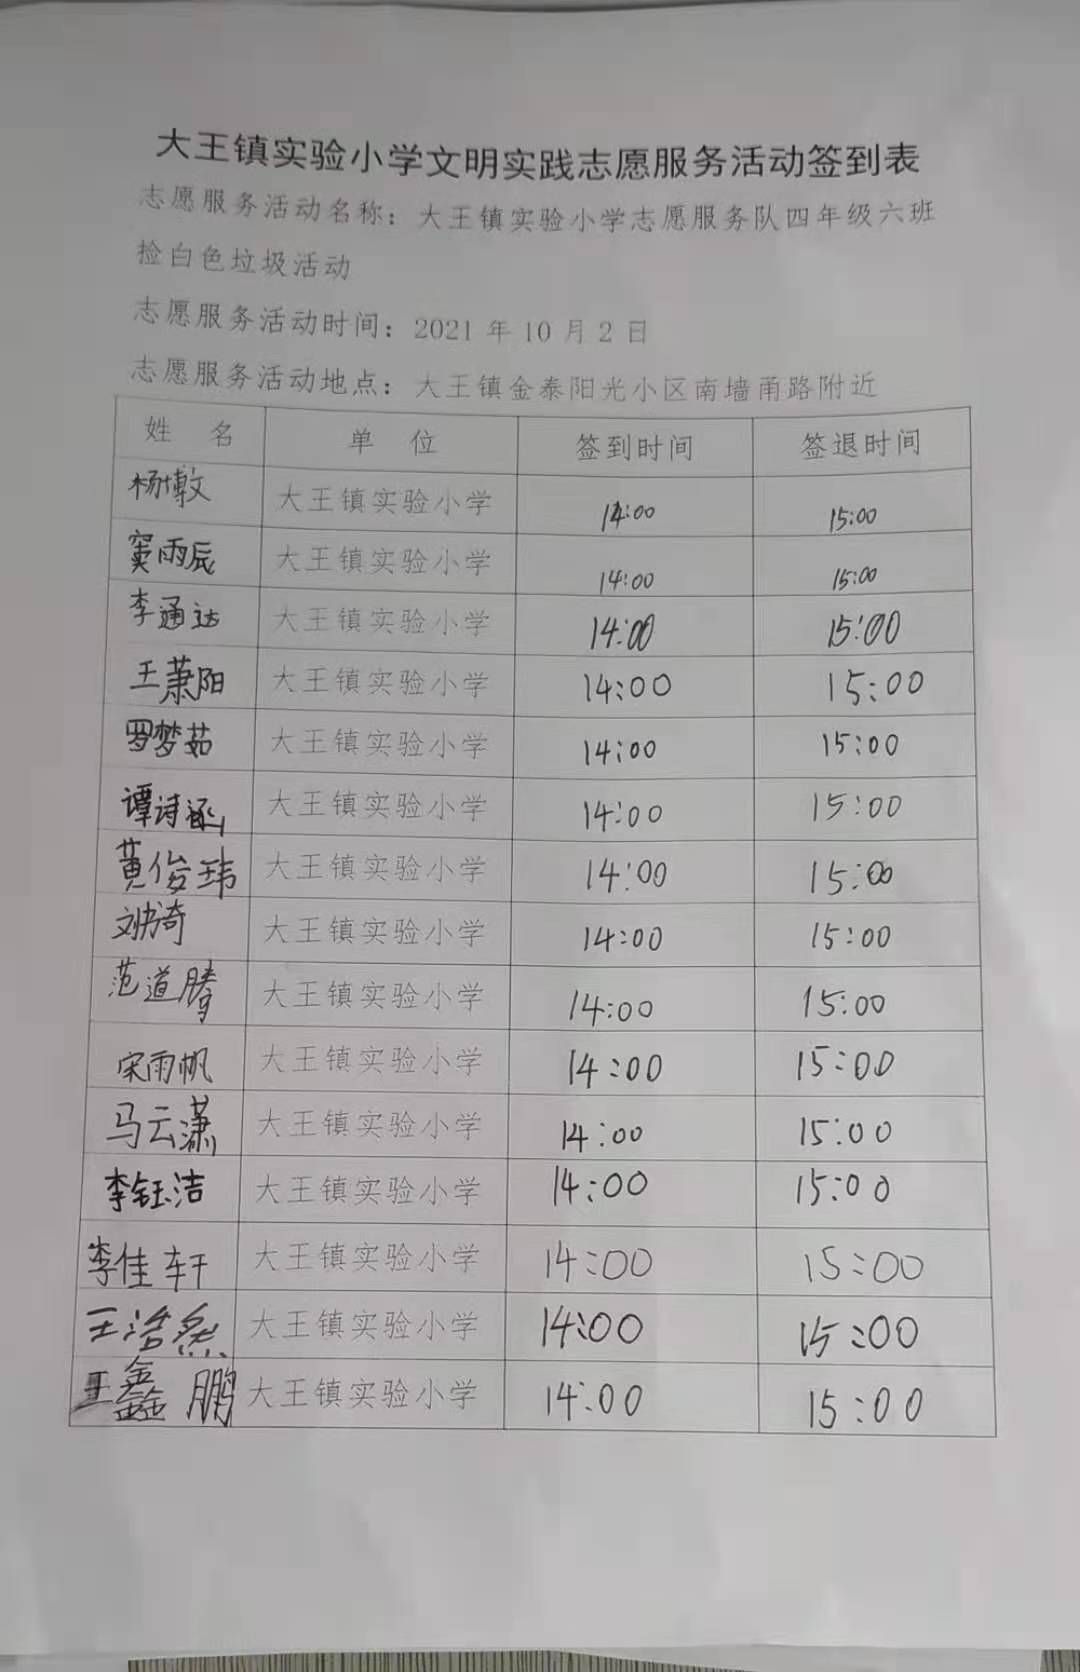 大王镇实验小学文明实践志愿服务活动签到表
志愿服务活动名称：大王镇实验小学志愿服务队四年级六班
捡白色垃圾活动
志愿服务活动时间：2021 年 10 月 2 日
志愿服务活动地点：大王镇金泰阳光小区南墙甬路附近
姓 名 单 位 签到时间 签退时间
杨博文 大王镇实验小学 14:00 15:00
窦雨辰 大王镇实验小学 14:00 15:00
李通达 大王镇实验小学 14:00 15:00
王萧阳 大王镇实验小学 14:00 15:00
罗梦茹 大王镇实验小学 14:00 15:00
谭诗涵 大王镇实验小学 14:00 15:00
黄俊玮 大王镇实验小学 14:00 15:00
刘书琦 大王镇实验小学 14:00 15:00
范道腾 大王镇实验小学 14:00 15:00
宋雨帆 大王镇实验小学 14:00 15:00
马云潇 大王镇实验小学 14:00 15:00
李钰洁 大王镇实验小学 14:00 15:00
李佳轩 大王镇实验小学 14:00 15:00
王浩然 大王镇实验小学 14:00 15:00
王鑫鹏 大王镇实验小学 14:00 15:00